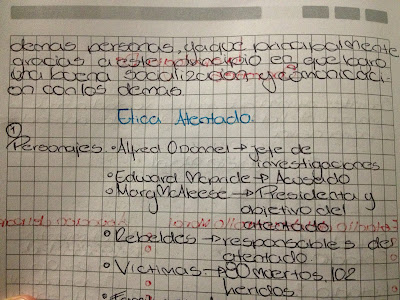 demas personas, ya que principalmente
gracias a este individuo es que logro
una buena socialización y comunicaci-
on con los demas.
Etica Atentado.
1
Personajes • Alfred Oconnel → jefe de
investigaciones
• Edward Mcpride → Acusado
• Mary McAleese → Presidenta y
objetivo del
atentado
• Rebeldes → responsables del
atentado
• Victimas → 90 muertos, 102
heridos